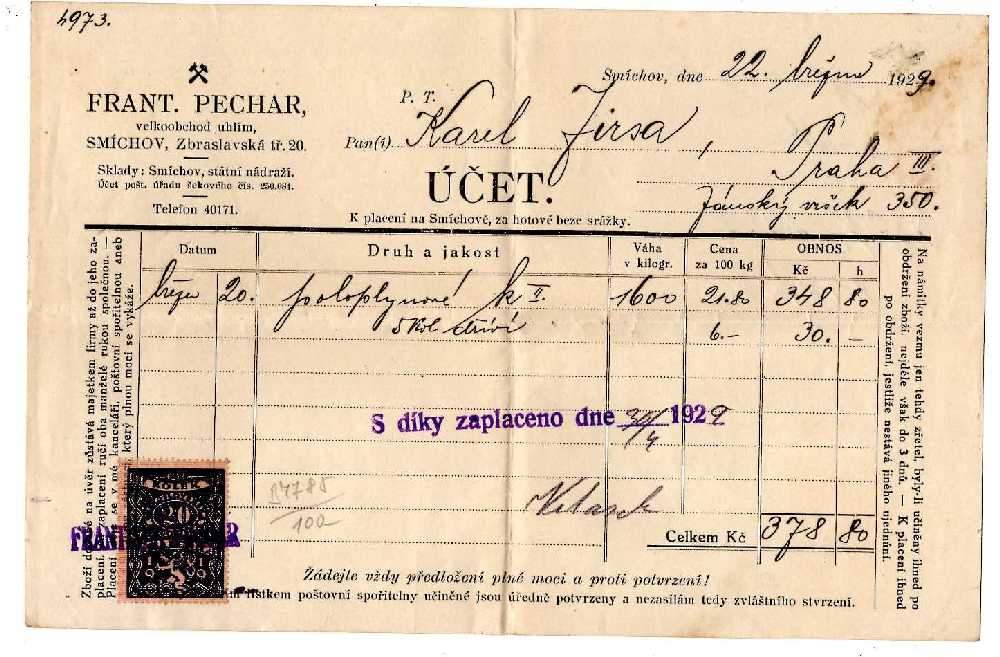 4973.
FRANT. PECHAR,
velkoobchod uhlím,
SMÍCHOV, Zbraslavská tř. 20.
Sklady: Smíchov, státní nádraží.
Účet pošt. úřadu šekového čís. 250.081.
Telefon 40171.
Smíchov, dne 22. března 1929.
P. T.
Pan(í) Karel Jirsa,
Praha III.
Jánský vršek 350.
ÚČET.
K placení na Smíchově, za hotové beze srážky.
Datum Druh a jakost Váha v kilogr. Cena za 100 kg OBNOS Kč h
březn 20. poloplynové k II. 1600 21.80 348 80
5 kol. dříví 6.— 30. —
S díky zaplaceno dne 1929
14785
100
Celkem Kč 378 80
KOLEK
20
1919
FRANT. AR
Žádejte vždy předložení plné moci a proti potvrzení!
lístkem poštovní spořitelny učiněné jsou úředně potvrzeny a nezasílám tedy zvláštního stvrzení.
Zboží na úvěr zůstává majetkem firmy až do jeho za-
placení. zaplacení ručí oba manželé rukou společnou. —
Placení se v mé kanceláři, poštovní spořitelnou aneb
který plnou mocí se vykáže.
Na námitky vezmu jen tehdy zřetel, byly-li učiněny ihned po
obdržení zboží, nejdéle však do 3 dnů. — K placení ihned
po obdržení, jestliže nestává jiného ujednání.